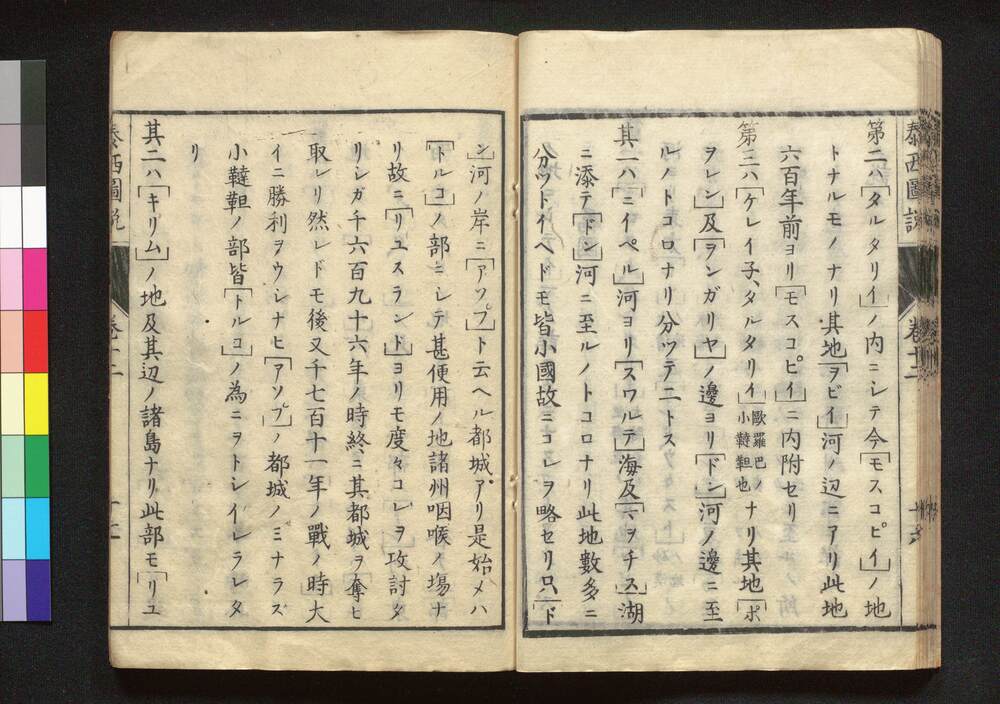 泰西圖說
卷十二
第二ハ「タルタリイ」ノ内ニシテ今「モスコビイ」ノ地
トナルモノナリ其地「ヲビイ」河ノ辺ニアリ此地
六百年前ヨリ「モスコビイ」ニ内附セリ
第三ハ「ケレイ子、タルタリイ」歐羅巴ノ小韃靼也ナリ其地「ポ
ヲレン」及「ヲンガリヤ」ノ邊ヨリ「ドン」河ノ邊ニ至
ルノトコロナリ分ツテ二トス
其一ハ「ニイペル」河ヨリ「スワルテ」海及「ヲチス」湖
ニ添テ「ドン」河ニ至ルノトコロナリ此地數多ニ
分ツトイヘドモ皆小國故ニコレヲ略セリ只「ド
ン」河ノ岸ニ「アソプ」ト云ヘル都城アリ是始メハ
「トルコ」ノ部ニシテ甚便用ノ地諸州咽喉ノ塲ナ
リ故ニ「リユスランド」ヨリモ度々コレヲ攻討タ
リシガ千六百九十六年ノ時終ニ其都城ヲ奪ヒ
取レリ然レドモ後又千七百十一年ノ戰ノ時大
イニ勝利ヲウシナヒ「アソプ」ノ都城ノミナラズ
小韃靼ノ部皆「トルコ」ノ為ニヲトシイレラレタ
リ
其二ハ「キリム」ノ地及其辺ノ諸島ナリ此部モ「リユ
泰西圖說
卷十二